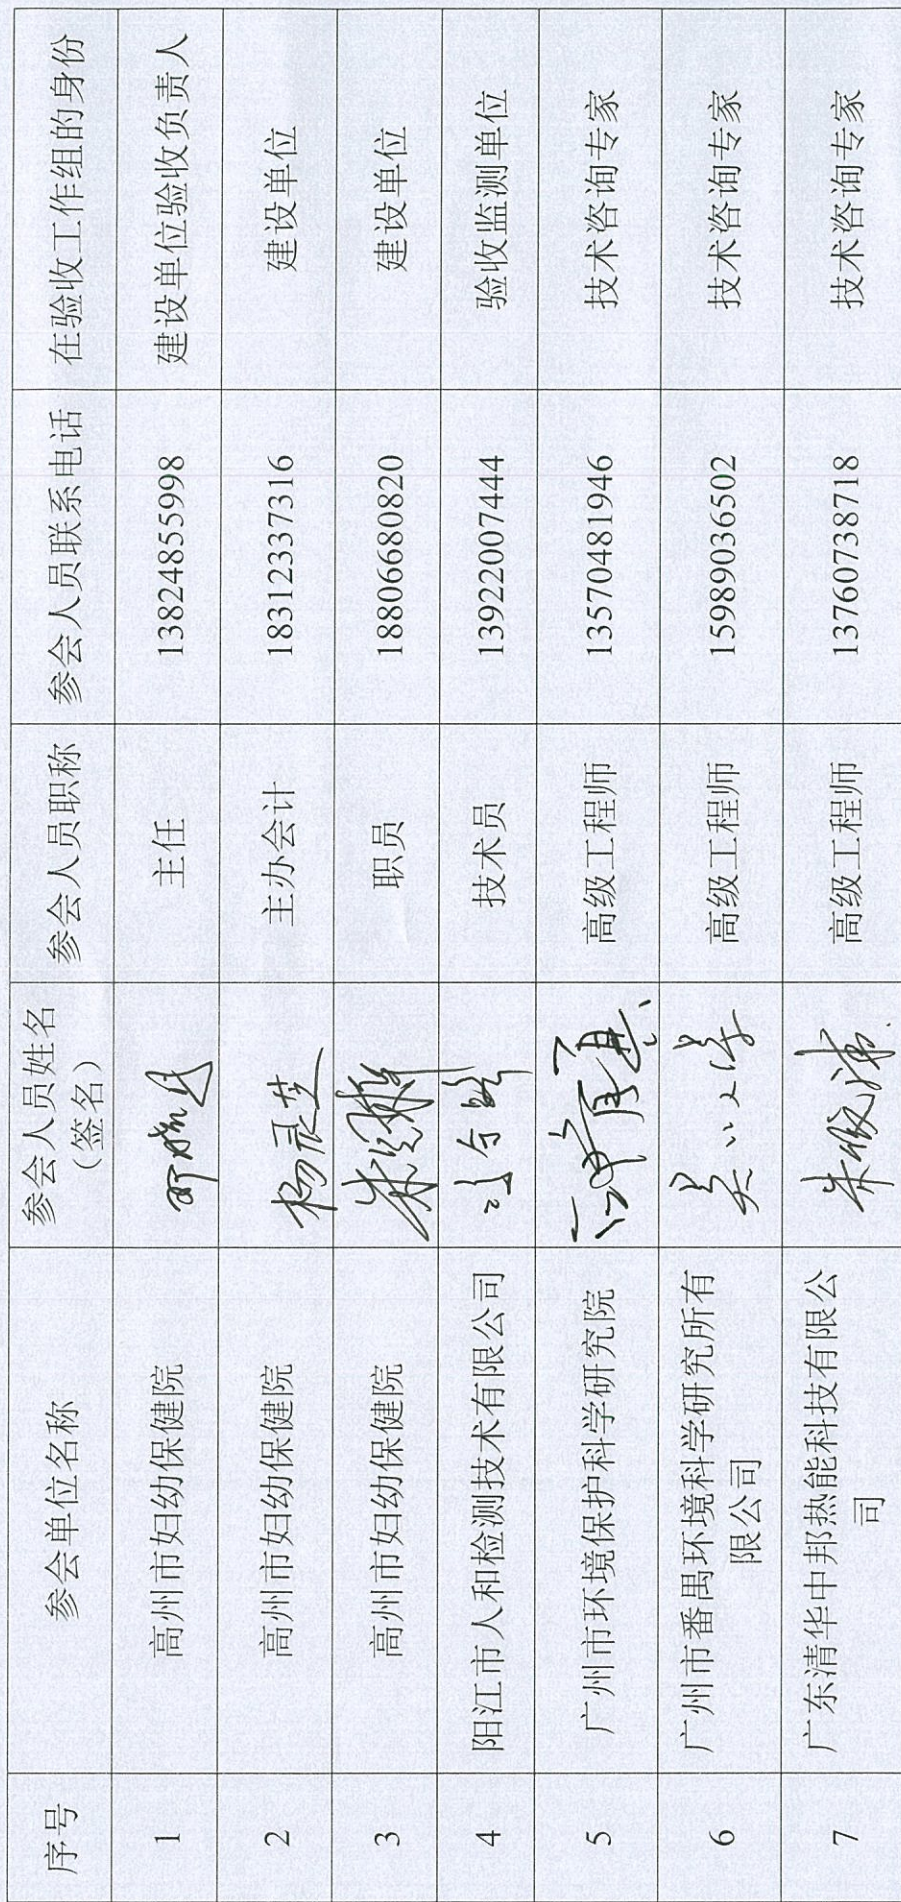 序号 参会单位名称 参会人员姓名（签名） 参会人员职称 参会人员联系电话 在验收工作组的身份
1 高州市妇幼保健院 主任 13824855998 建设单位验收负责人
2 高州市妇幼保健院 主办会计 18312337316 建设单位
3 高州市妇幼保健院 职员 18806680820 建设单位
4 阳江市人和检测技术有限公司 技术员 13922007444 验收监测单位
5 广州市环境保护科学研究院 高级工程师 13570481946 技术咨询专家
6 广州市番禺环境科学研究所有限公司 高级工程师 15989036502 技术咨询专家
7 广东清华中邦热能科技有限公司 高级工程师 13760738718 技术咨询专家